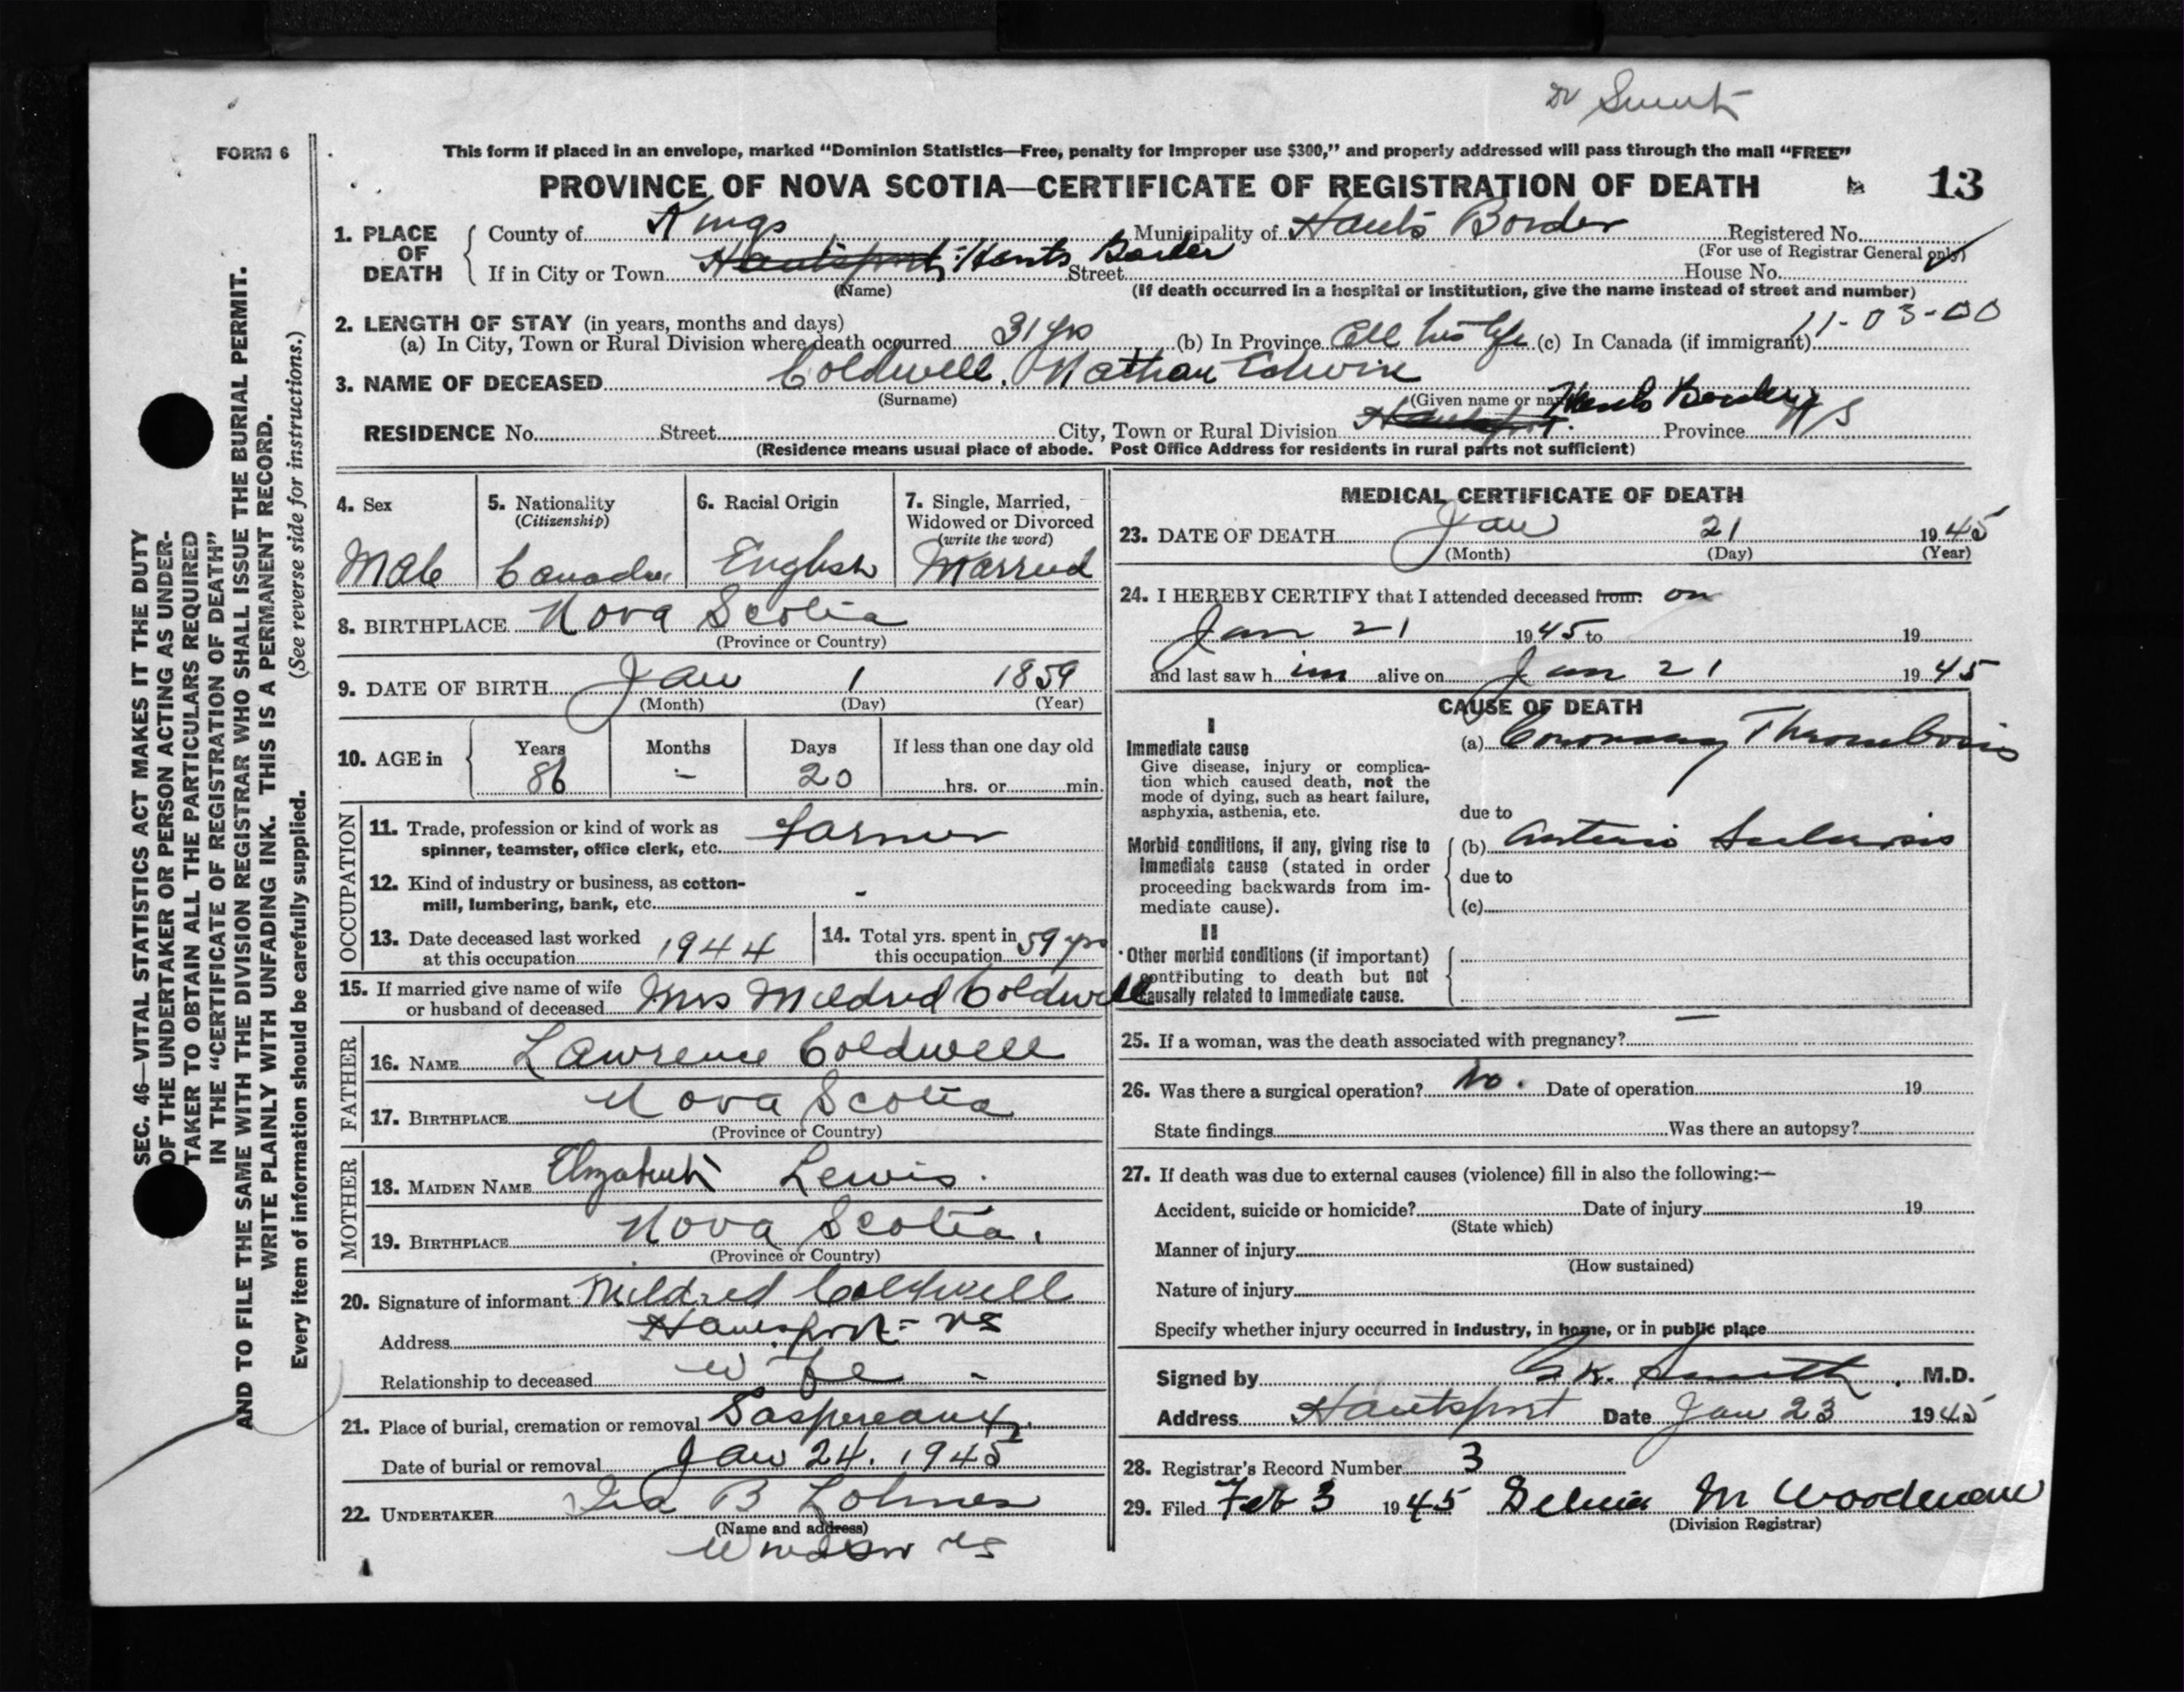 Dr Smith
FORM 6
This form if placed in an envelope, marked “Dominion Statistics—Free, penalty for improper use $300,” and properly addressed will pass through the mail “FREE”
PROVINCE OF NOVA SCOTIA—CERTIFICATE OF REGISTRATION OF DEATH 13
1. PLACE OF DEATH
County of Kings Municipality of Hants Border Registered No.
(For use of Registrar General only)
If in City or Town Hantsport Hants Border Street House No.
(Name) (If death occurred in a hospital or institution, give the name instead of street and number)
2. LENGTH OF STAY (in years, months and days) 11-03-00
(a) In City, Town or Rural Division where death occurred 31 yrs (b) In Province All his life (c) In Canada (if immigrant)
3. NAME OF DECEASED Coldwell, Nathan Edwin
(Surname) (Given name or names)
RESIDENCE No. Street City, Town or Rural Division Hantsport. Hants Border Province NS
(Residence means usual place of abode. Post Office Address for residents in rural parts not sufficient)
4. Sex
Male
5. Nationality
(Citizenship)
Canada
6. Racial Origin
English
7. Single, Married,
Widowed or Divorced
(write the word)
Married
8. BIRTHPLACE Nova Scotia
(Province or Country)
9. DATE OF BIRTH Jan 1 1859
(Month) (Day) (Year)
10. AGE in Years Months Days If less than one day old
86 - 20 hrs. or min.
OCCUPATION
11. Trade, profession or kind of work as
spinner, teamster, office clerk, etc. Farmer
12. Kind of industry or business, as cotton-
mill, lumbering, bank, etc. -
13. Date deceased last worked
at this occupation 1944
14. Total yrs. spent in
this occupation 59 yrs
15. If married give name of wife
or husband of deceased Mrs Mildred Coldwell
FATHER
16. NAME Lawrence Coldwell
17. BIRTHPLACE Nova Scotia
(Province or Country)
MOTHER
18. MAIDEN NAME Elizabeth Lewis.
19. BIRTHPLACE Nova Scotia.
(Province or Country)
20. Signature of informant Mildred Coldwell
Address Hantsport - NS
Relationship to deceased Wife -
21. Place of burial, cremation or removal Gaspereaux
Date of burial or removal Jan 24. 1945
22. UNDERTAKER Ira B Lohnes
(Name and address)
Windsor NS
MEDICAL CERTIFICATE OF DEATH
23. DATE OF DEATH Jan 21 1945
(Month) (Day) (Year)
24. I HEREBY CERTIFY that I attended deceased from: on
Jan 21 1945 to 19
and last saw him alive on Jan 21 1945
CAUSE OF DEATH
I
Immediate cause
Give disease, injury or complica-
tion which caused death, not the
mode of dying, such as heart failure,
asphyxia, asthenia, etc.
(a) Coronary Thrombosis
due to
Morbid conditions, if any, giving rise to
immediate cause (stated in order
proceeding backwards from im-
mediate cause).
(b) Arterio Sclerosis
due to
(c)
II
Other morbid conditions (if important)
contributing to death but not
causally related to immediate cause.
25. If a woman, was the death associated with pregnancy? —
26. Was there a surgical operation? No. Date of operation 19
State findings Was there an autopsy?
27. If death was due to external causes (violence) fill in also the following:—
Accident, suicide or homicide? Date of injury 19
(State which)
Manner of injury
(How sustained)
Nature of injury
Specify whether injury occurred in industry, in home, or in public place
Signed by Smith, M.D.
Address Hantsport Date Jan 23 1945
28. Registrar's Record Number 3
29. Filed Feb 3 1945 M Woodman
(Division Registrar)
SEC. 46—VITAL STATISTICS ACT MAKES IT THE DUTY
OF THE UNDERTAKER OR PERSON ACTING AS UNDER-
TAKER TO OBTAIN ALL THE PARTICULARS REQUIRED
IN THE “CERTIFICATE OF REGISTRATION OF DEATH”
AND TO FILE THE SAME WITH THE DIVISION REGISTRAR WHO SHALL ISSUE THE BURIAL PERMIT.
WRITE PLAINLY WITH UNFADING INK. THIS IS A PERMANENT RECORD.
Every item of information should be carefully supplied. (See reverse side for instructions.)